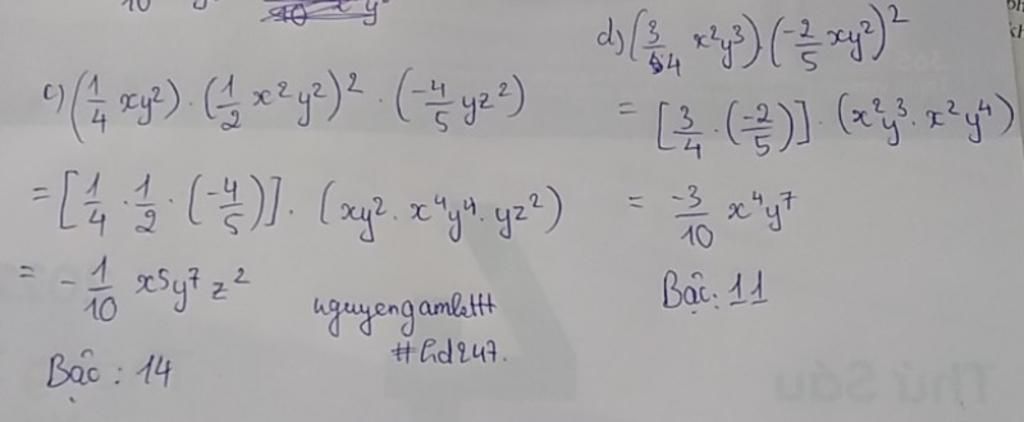 c) (1/4 xy²) . (1/2 x²y²)² . (-4/5 yz²)
= [1/4 . 1/2 . (-4/5)] . (xy² . x⁴y⁴ . yz²)
= - 1/10 x⁵y⁷ z²
Bậc : 14
nguyengamlettt
#hd247.
d) (3/4 x²y³) . (-2/5 xy²)²
= [3/4 . (-2/5)] . (x²y³ . x²y⁴)
= -3/10 x⁴y⁷
Bậc: 11
Thứ Sáu